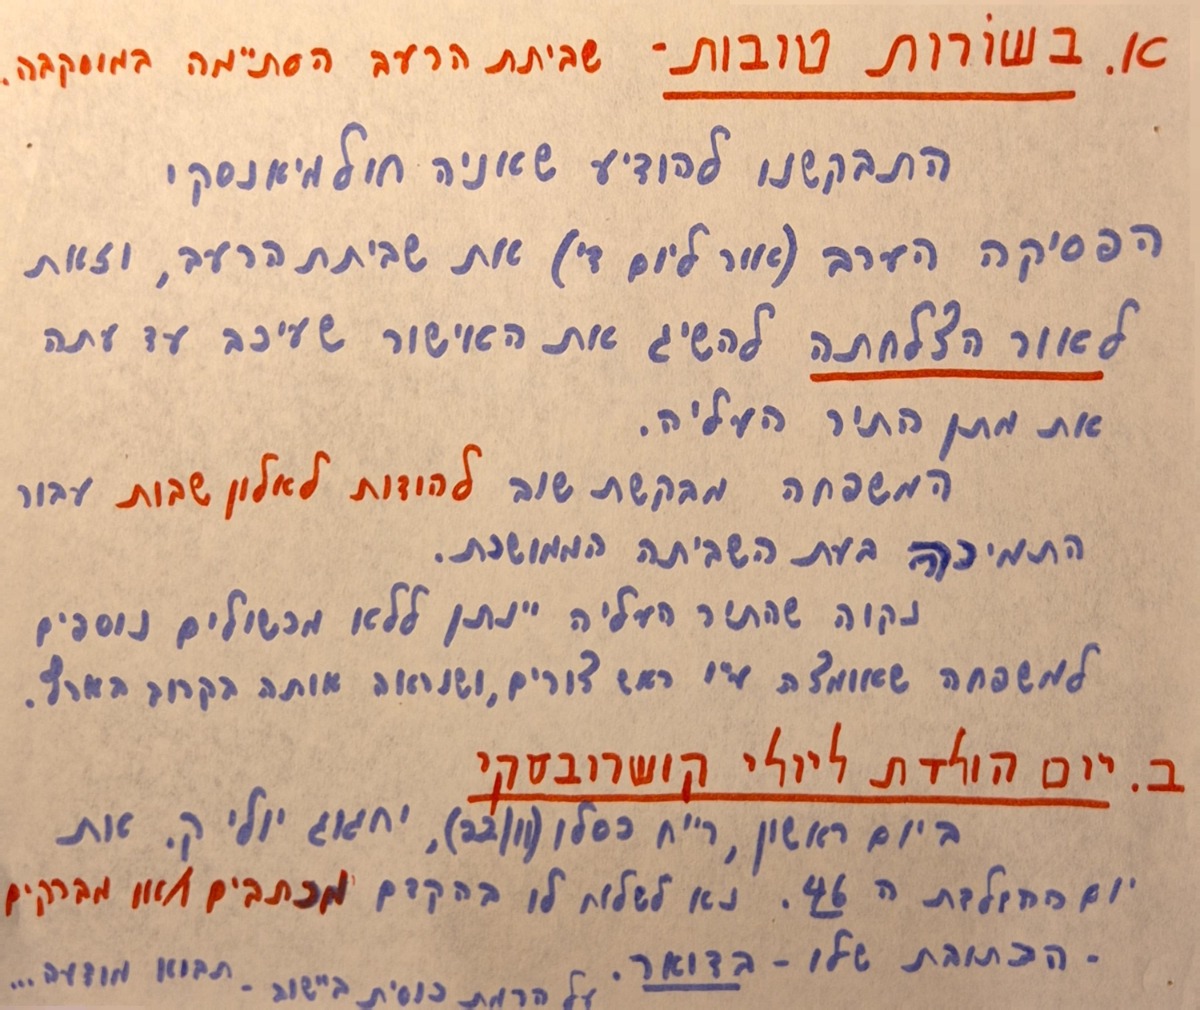 א. בשורות טובות - שביתת הרעב הסתיימה במוסקבה.
התבקשנו להודיע שאניה חולמיאנסקי
הפסיקה הערב (אור ליום ד') את שביתת הרעב, וזאת
לאור הצלחתה להשיג את האישור שעיכב עד עתה
את מתן התיר העליה.
המשפחה מבקשת שוב להודות לאלון שבות עבור
התמיכה בעת השביתה הממושכת.
נקוה שהתיר העליה יינתן ללא מכשולים נוספים
למשפחה שאומצה ע"י ראש צורים, ושנראה אותה בקרוב בארץ.
ב. יום הולדת ליולי קושרובסקי
ביום ראשון, ר"ח כסלו (22/11), יחגוג יולי ק. את
יום ההולדת ה 46. נא לשלוח לו בהקדם מכתבים ו/או מברקים
- הכתובת שלו - בדואר.
על הרמת כוסית ביישוב - תבוא מודעה...